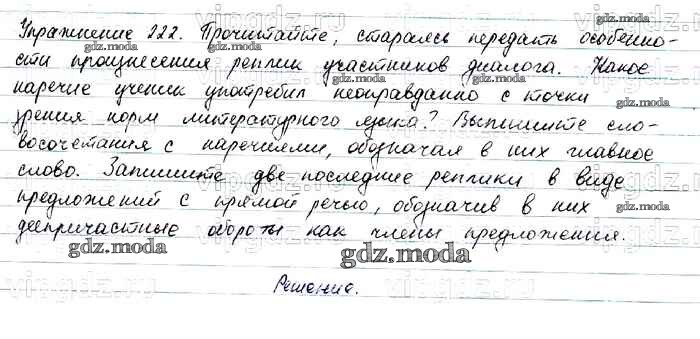 Упражнение 222. Прочитайте, стараясь передать особенно-
сти произнесения реплик участников диалога. Какое
наречие ученик употребил неоправданно с точки
зрения норм литературного языка? Выпишите сло-
восочетания с наречиями, обозначая в них главное
слово. Запишите две последние реплики в виде
предложений с прямой речью, обозначив в них
деепричастные обороты как члены предложения.
Решение.